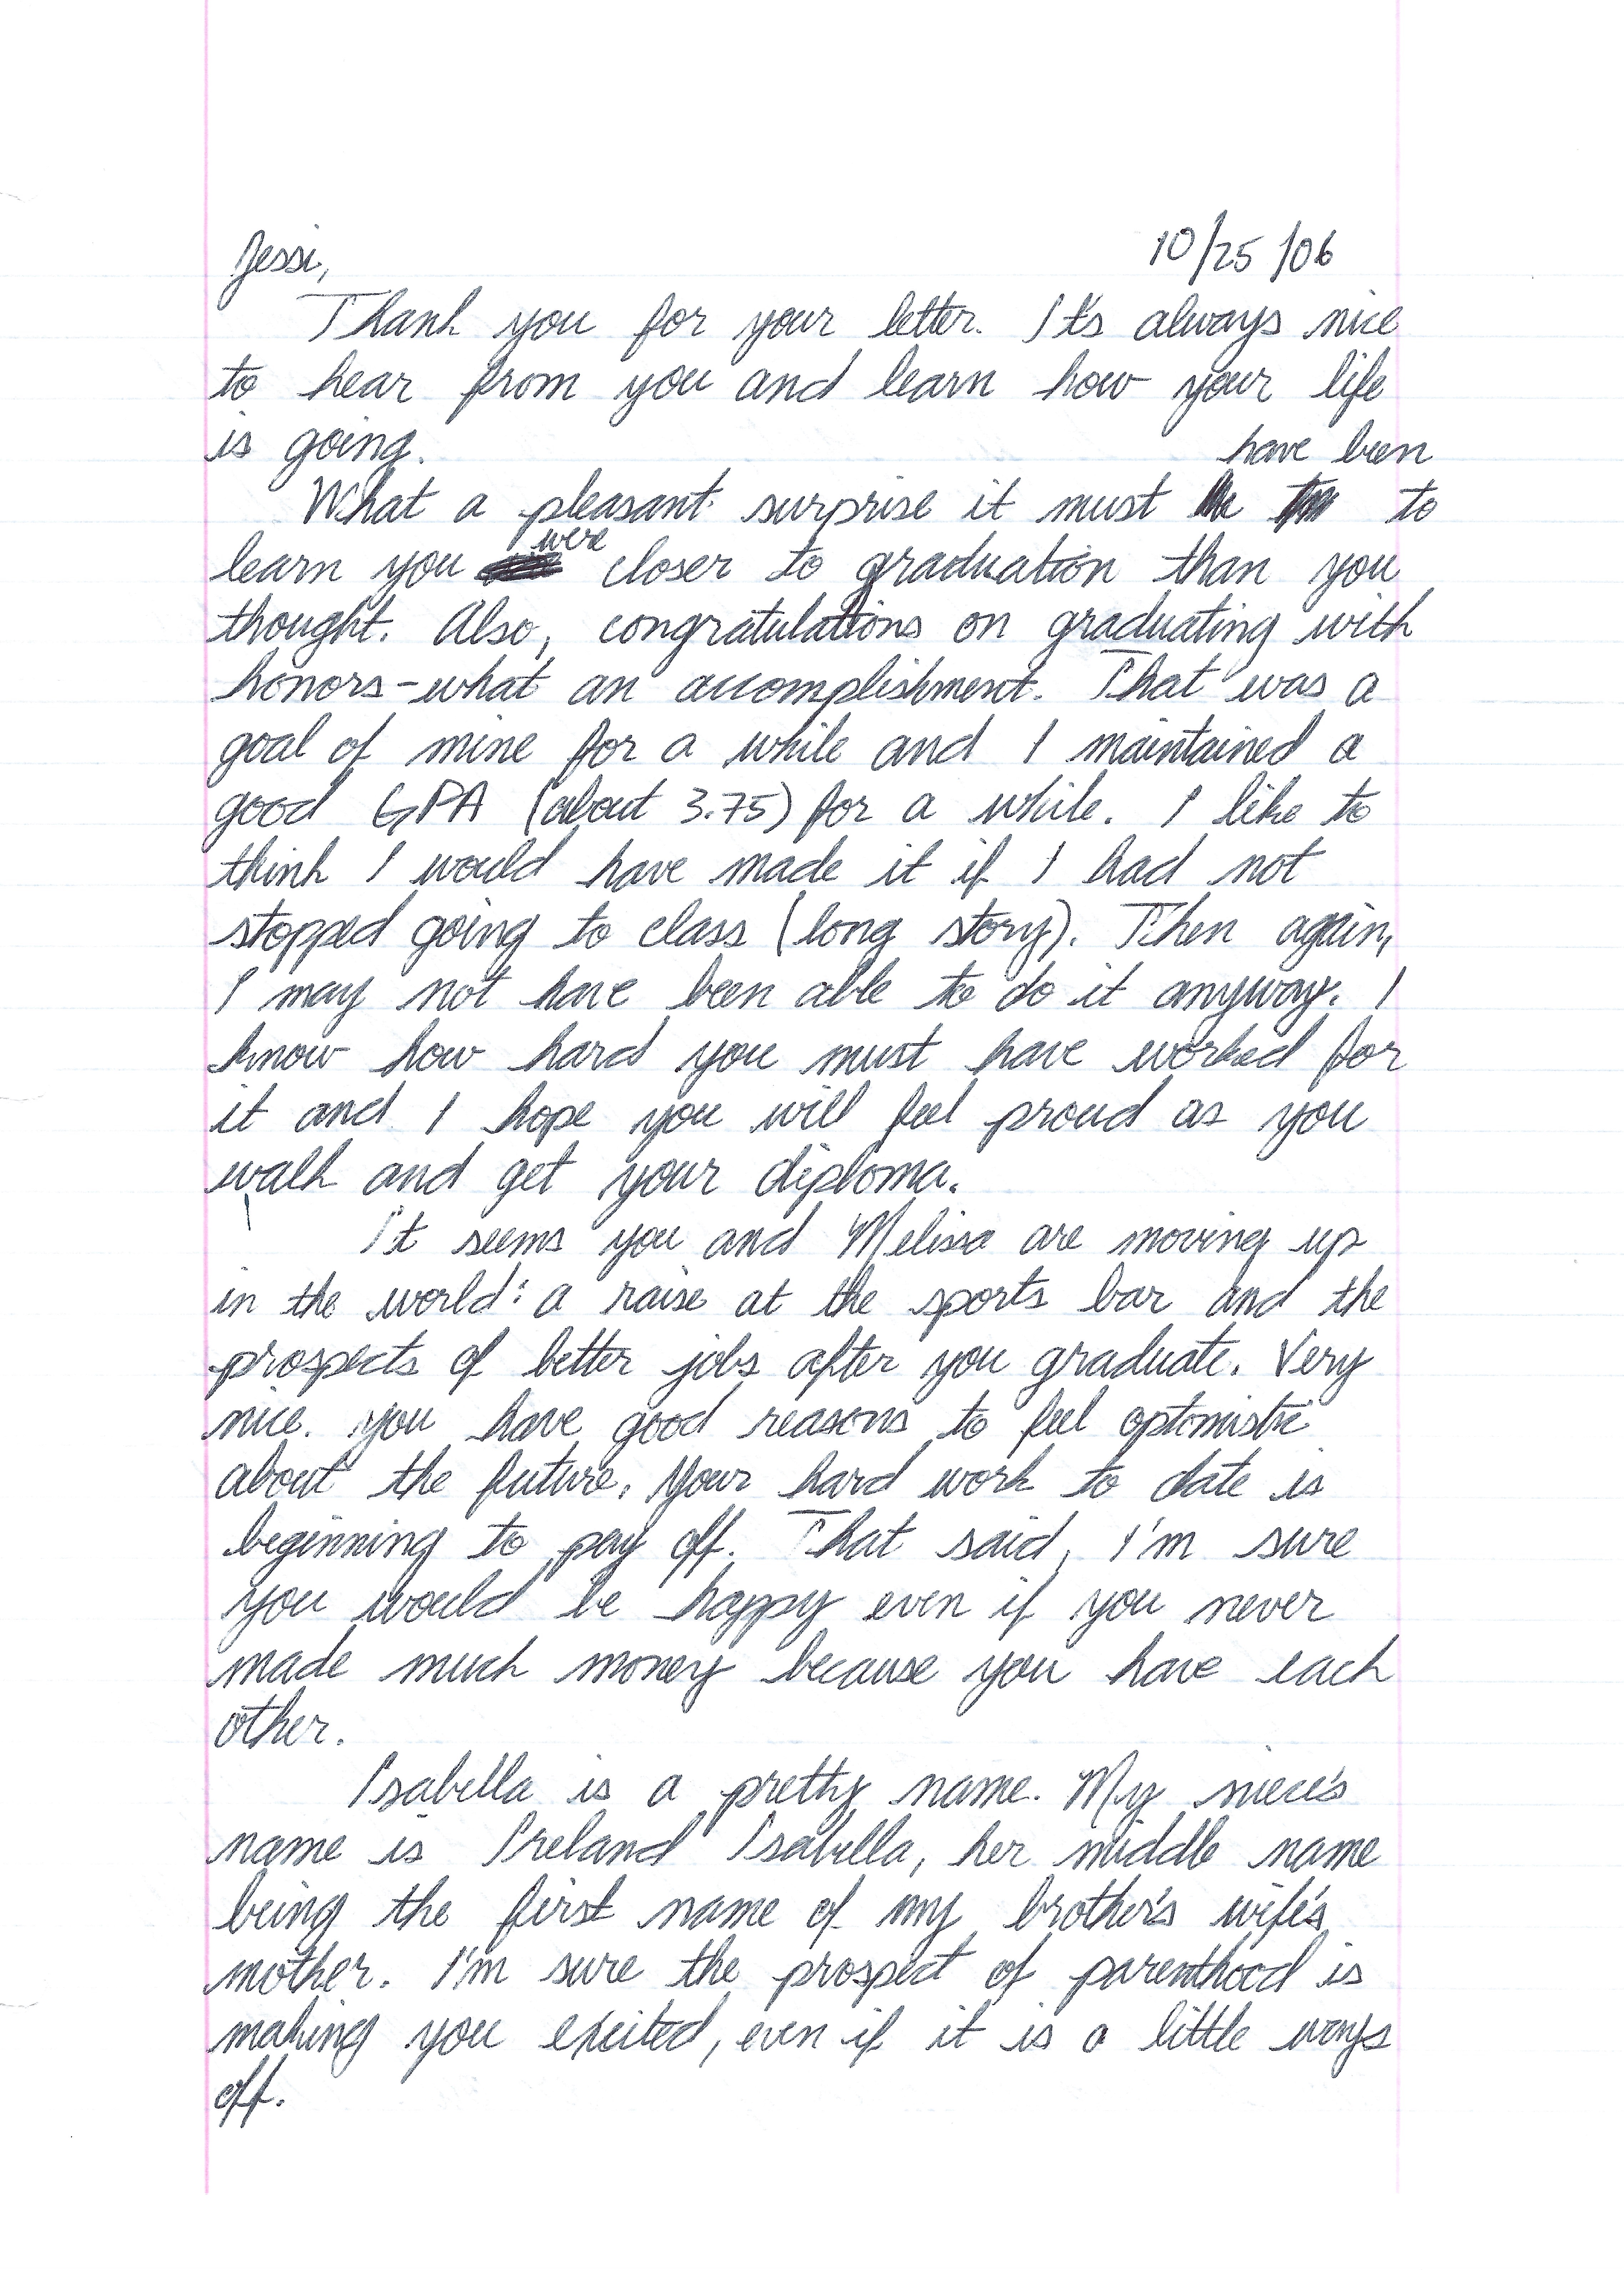 Jessi, 10/25/06
Thank you for your letter. It's always nice
to hear from you and learn how your life
is going.
have been
What a pleasant surprise it must to
were
learn you closer to graduation than you
thought. Also, congratulations on graduating with
honors-what an accomplishment. That was a
goal of mine for a while and I maintained a
good GPA (about 3.75) for a while. I like to
think I would have made it if I had not
stopped going to class (long story). Then again,
I may not have been able to do it anyway. I
know how hard you must have worked for
it and I hope you will feel proud as you
walk and get your diploma.
It seems you and Melissa are moving up
in the world: a raise at the sports bar and the
prospects of better jobs after you graduate. Very
nice. You have good reasons to feel optomistic
about the future. Your hard work to date is
beginning to pay off. That said, I'm sure
you would be happy even if you never
made much money because you have each
other.
Isabella is a pretty name. My niece's
name is Ireland Isabella, her middle name
being the first name of my brother's wife's
mother. I'm sure the prospect of parenthood is
making you excited, even if it is a little ways
off.